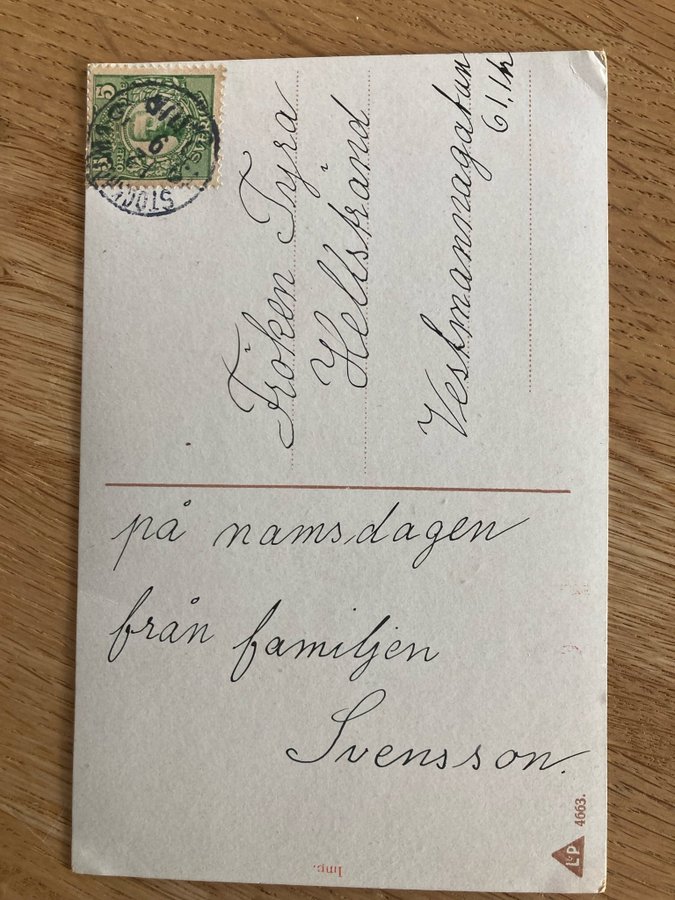 5
STOCKHOLM
Fröken Tyra
Hellstrånd
Vestmannagatan
61,
på namsdagen
från familjen
Svensson.
L&P 4663.
Imp.